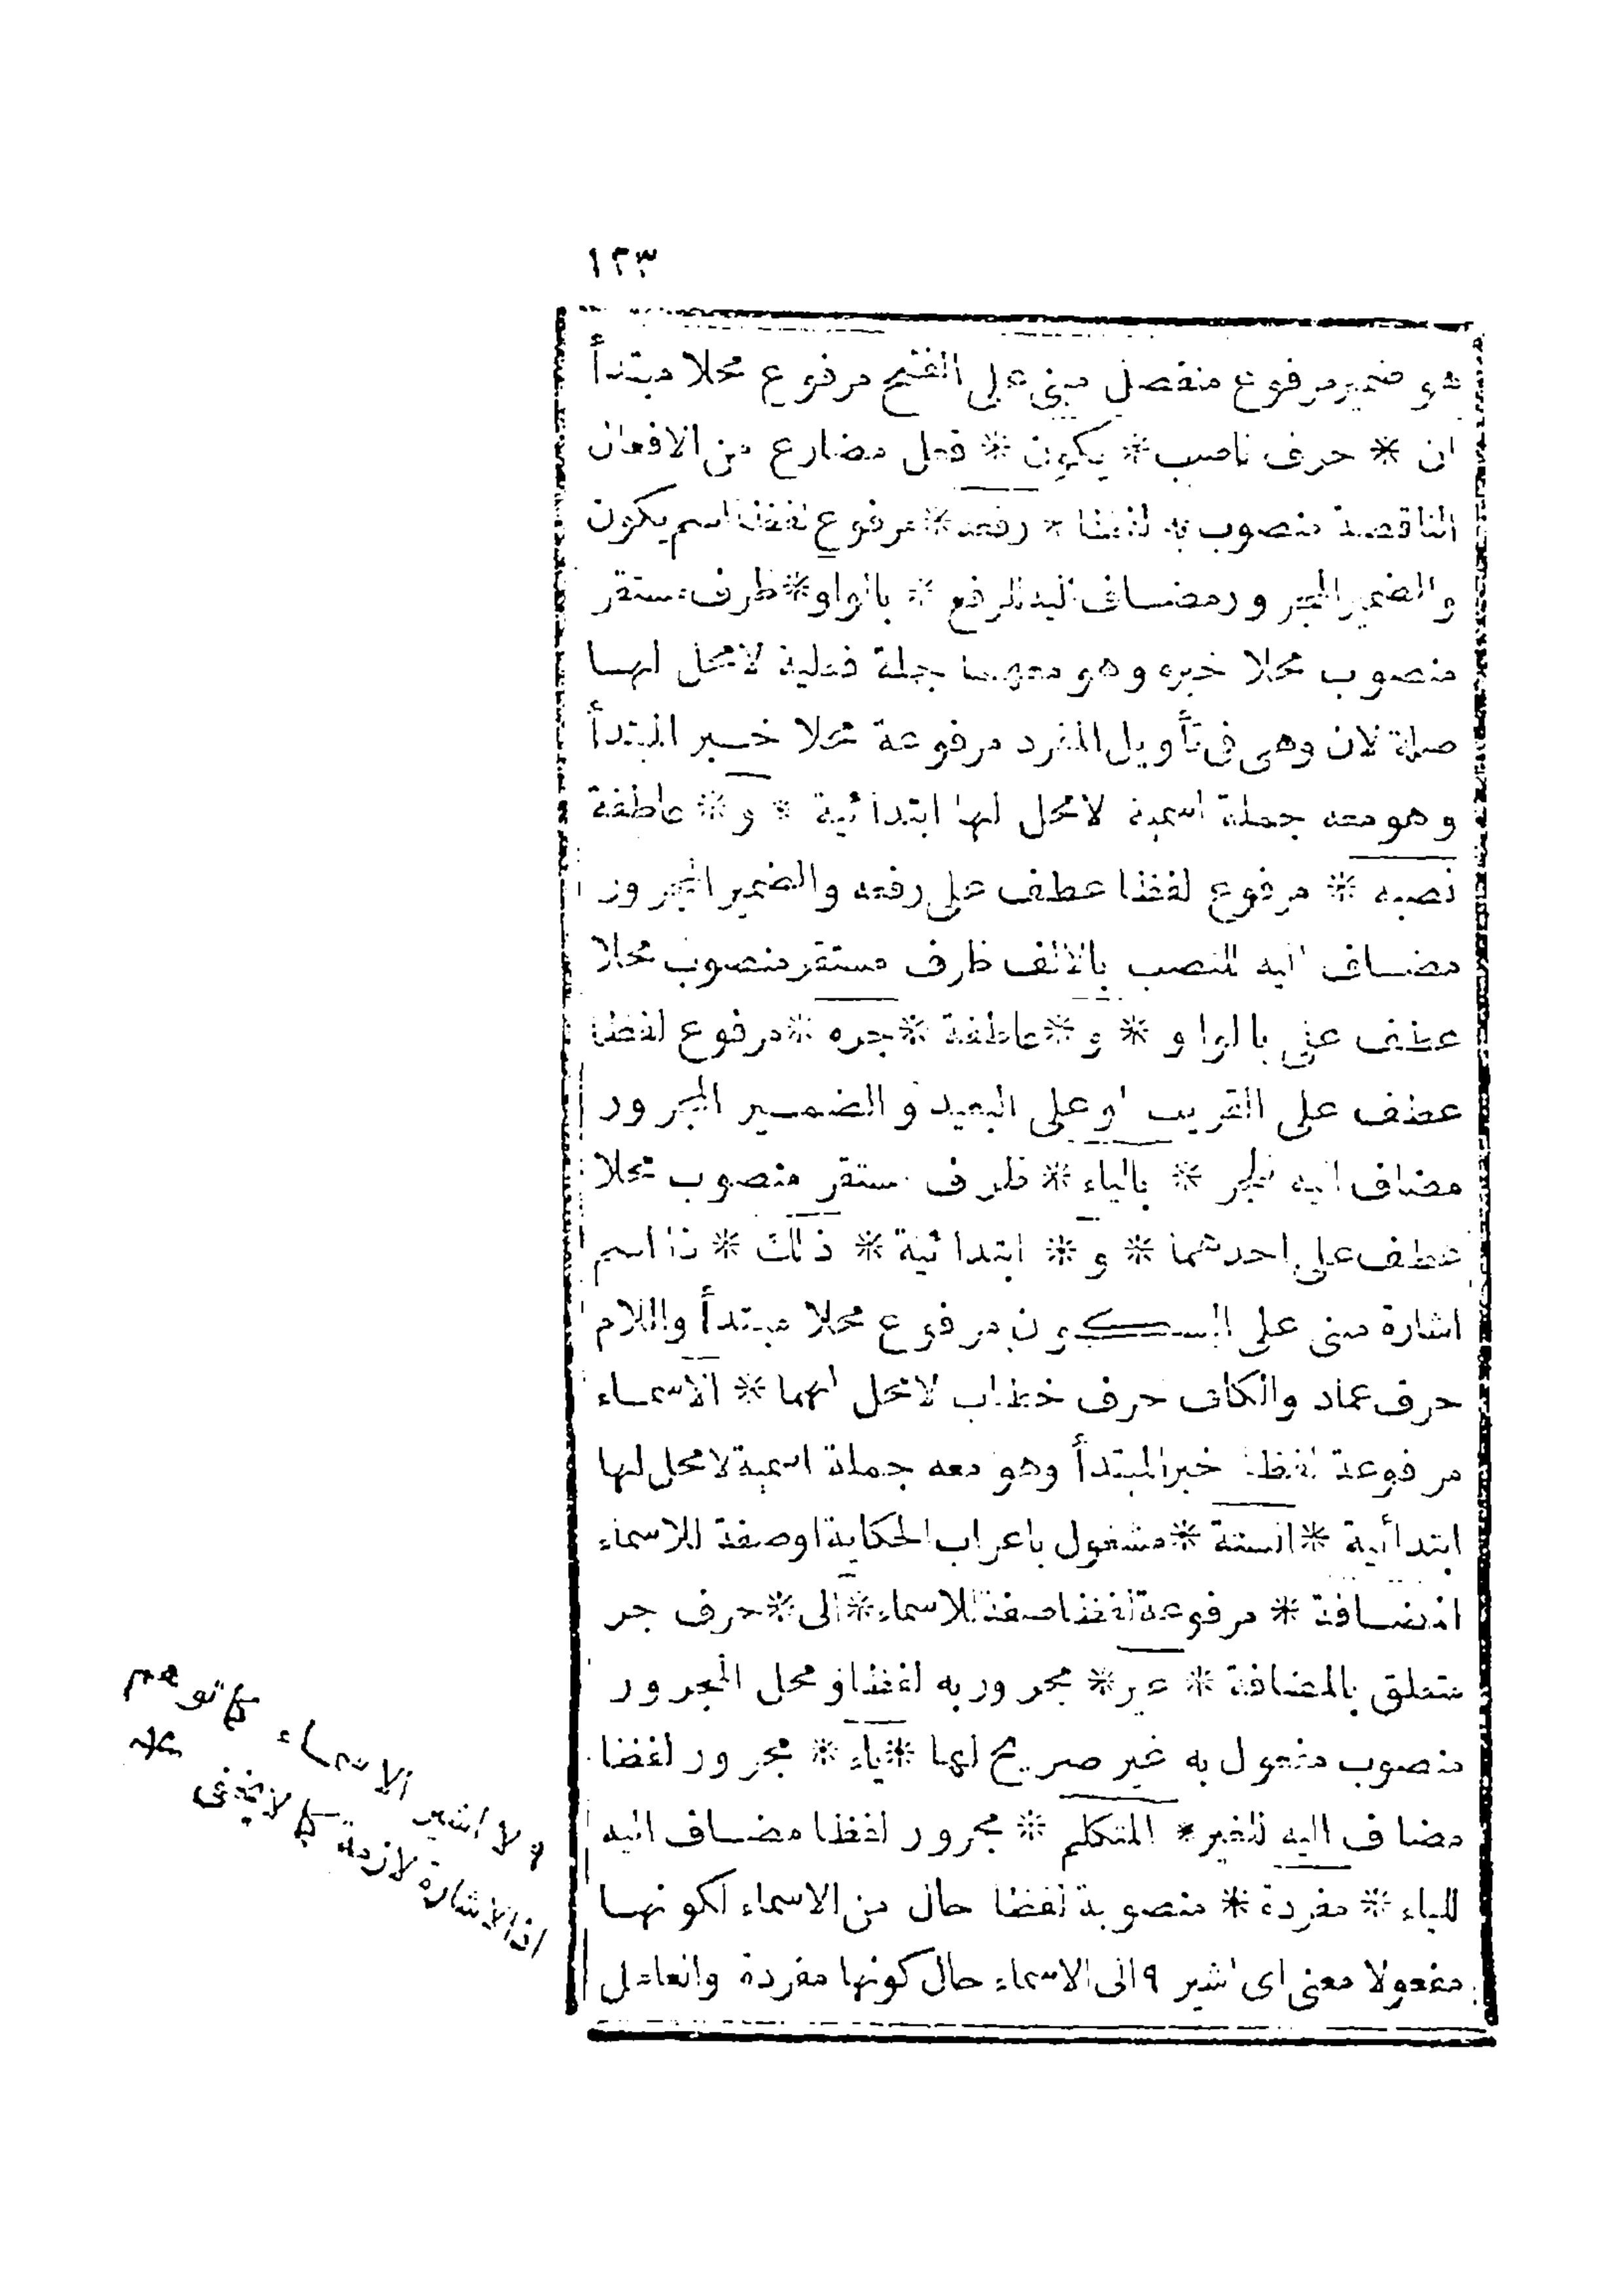 ١٢٣
هو ضمير مرفوع منفصل مبنى على الفتح مرفوع محلا مبتدأ
ان * حرف ناصب * يكون * فعل مضارع من الافعال
الناقصة منصوب به لفظا * رفعه * مرفوع لفظا اسم يكون
والضمير المجرور مضاف اليه للرفع * بالواو * ظرف مستقر
منصوب محلا خبره وهو معهما جملة فعلية لا محل لها
صلة لان وهى فى تأويل المفرد مرفوعة محلا خبر المبتدأ
وهو معه جملة اسمية لا محل لها ابتدائية * و * عاطفة
نصبه * مرفوع لفظا عطف على رفعه والضمير المجرور
مضاف اليه للنصب بالالف ظرف مستقر منصوب محلا
عطف على بالواو * و * عاطفة * جره * مرفوع لفظا
عطف على القريب او على البعيد و الضمير المجرور
مضاف اليه للجر * بالياء * ظرف مستقر منصوب محلا
عطف على احدهما * و * ابتدائية * ذلك * ذا اسم
اشارة مبنى على السكون مرفوع محلا مبتدأ واللام
حرف عماد والكاف حرف خطاب لا محل لهما * الاسماء
مرفوعة لفظا خبر المبتدأ وهو معه جملة اسمية لا محل لها
ابتدائية * الستة * مشغول باعراب الحكاية او صفة للاسماء
المضافة * مرفوعة لفظا صفة للاسماء * الى * حرف جر
متعلق بالمضافة * غير * مجرور به لفظا و محل المجرور
منصوب مفعول به غير صريح لها * ياء * مجرور لفظا
مضاف اليه للغير * المتكلم * مجرور لفظا مضاف اليه
للياء * مفردة * منصوبة لفظا حال من الاسماء لكونها
مفعولا معنى اى اشير ٩ الى الاسماء حال كونها مفردة والعامل
٩ لا اشير الاسماء كما توهم
اذ الاشارة لازمة كما لا يخفى *